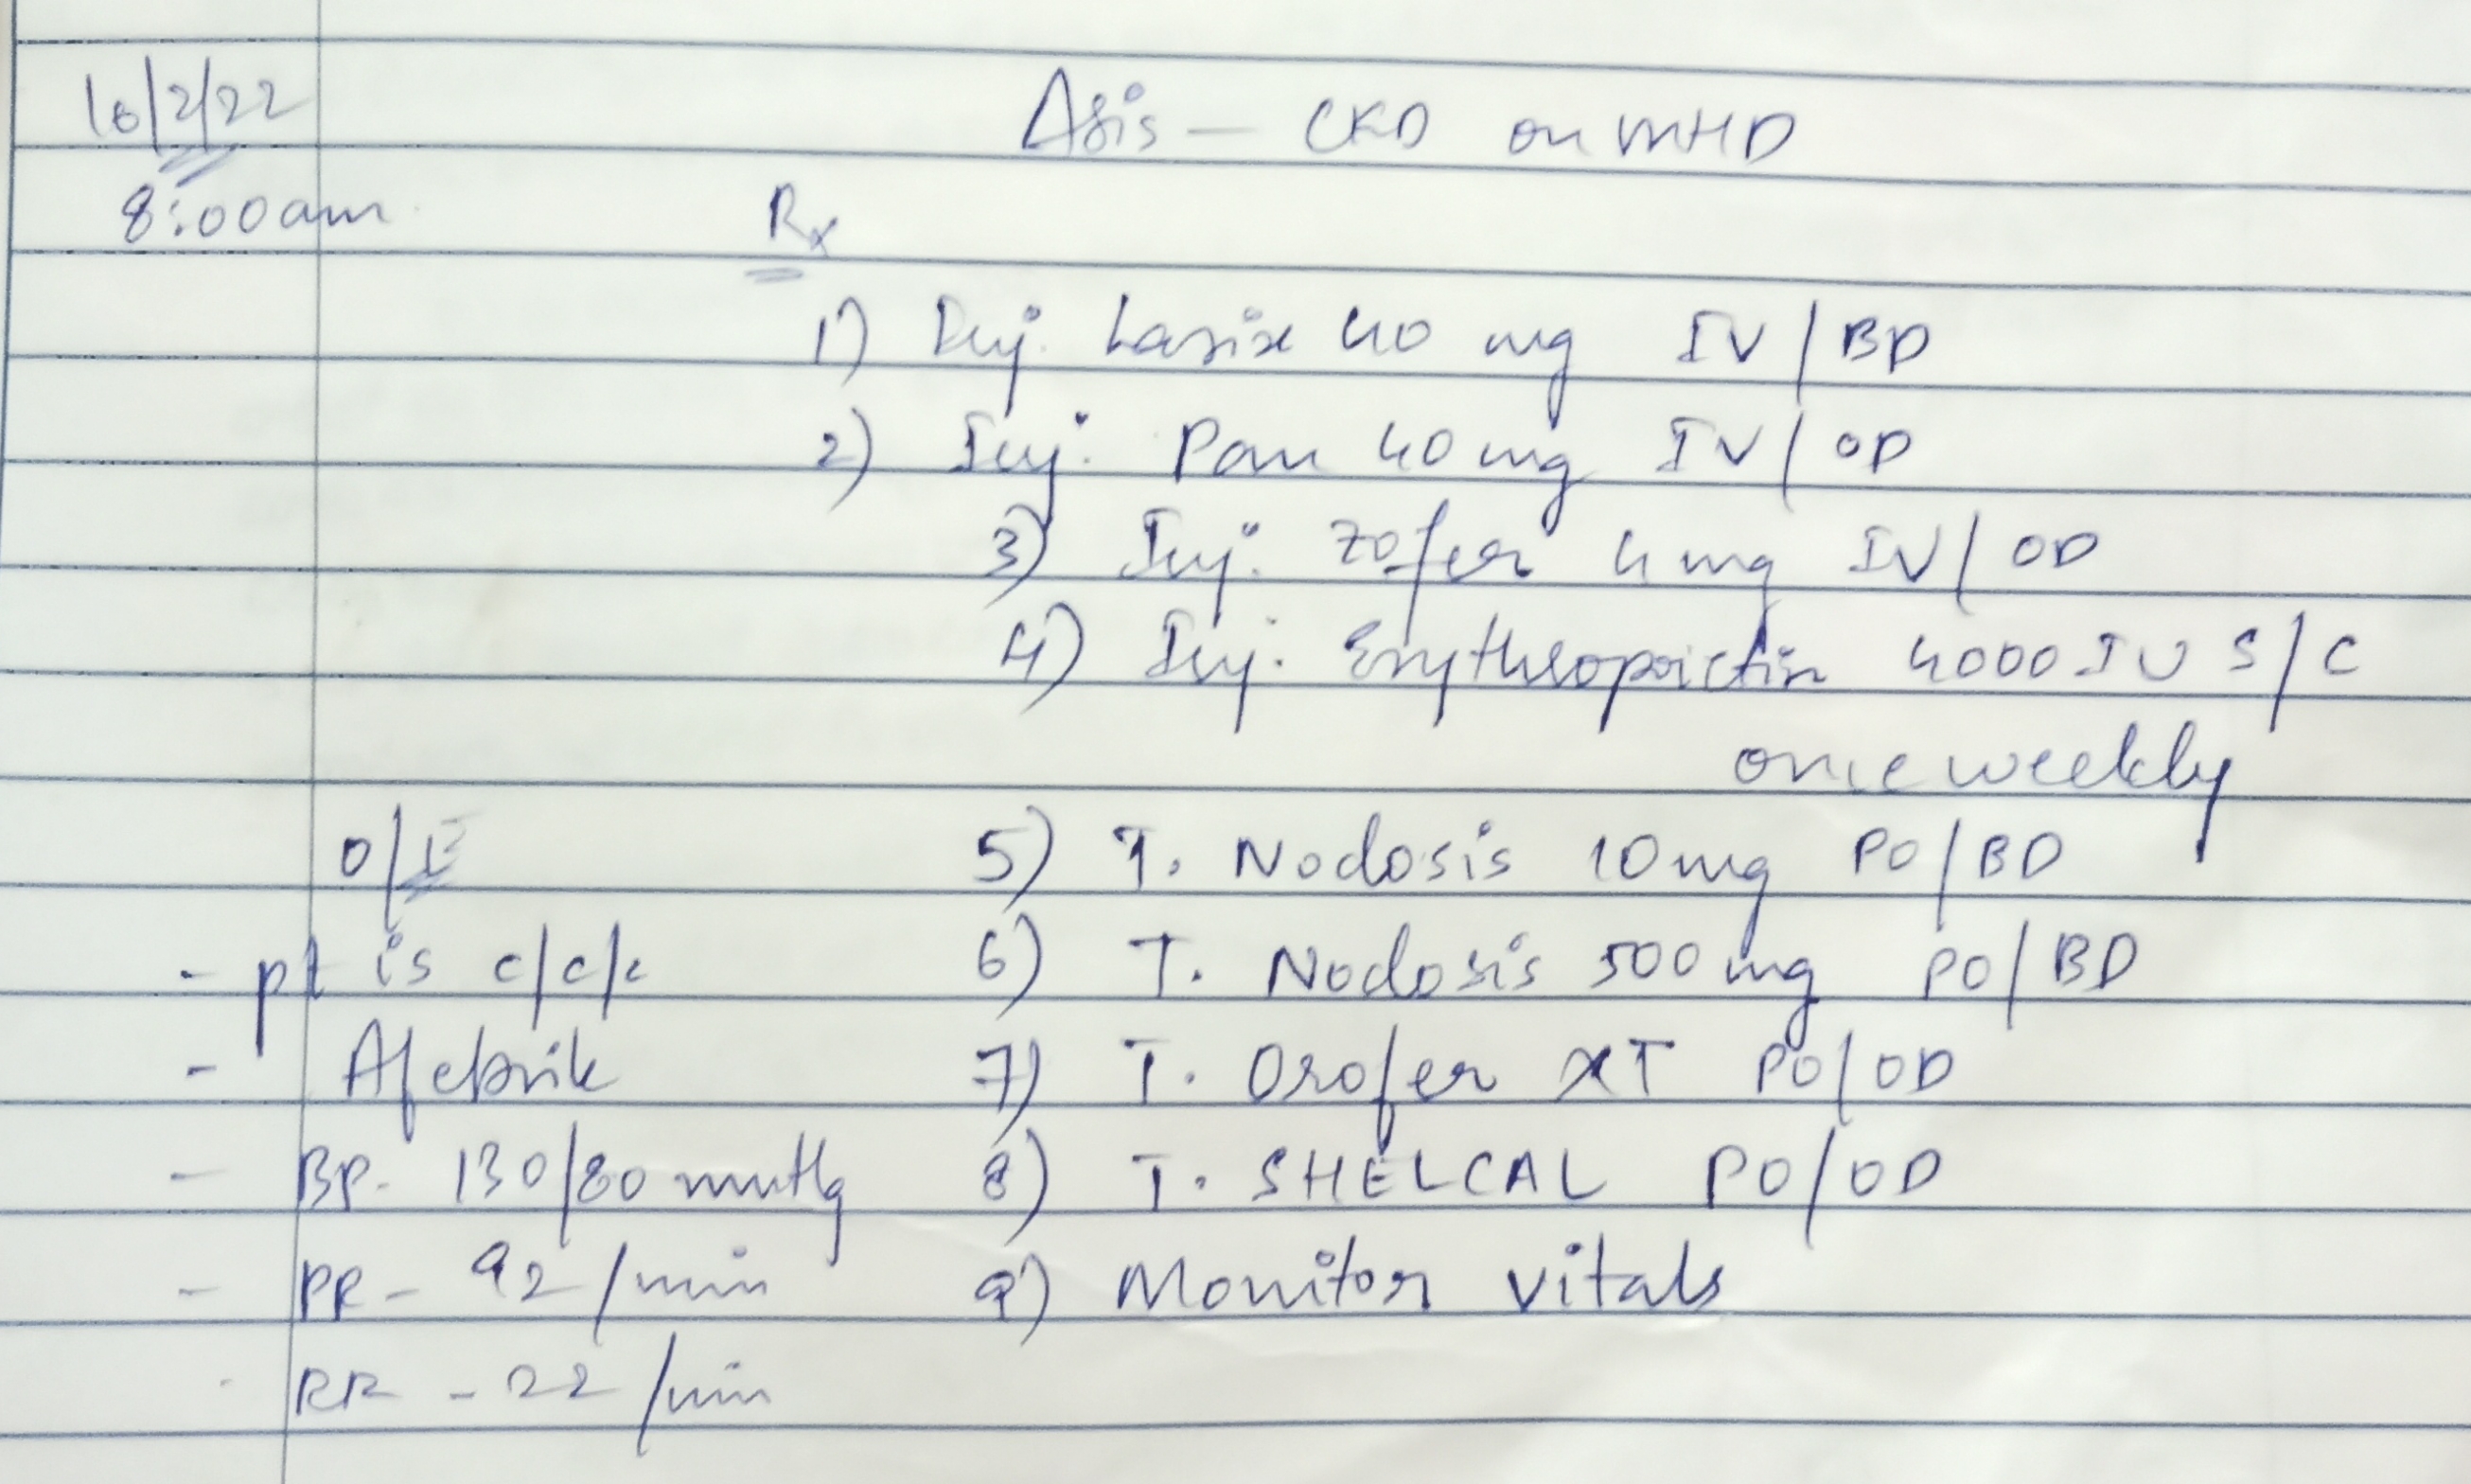 10/2/22
Δsis – CKD on MHD
8:00am
Rx
1) Inj. Lasix 40 mg IV/BD
2) Inj. Pan 40 mg IV/OD
3) Inj. Zofer 4 mg IV/OD
4) Inj. Erythropoietin 4000 IU S/C
once weekly
O/E
5) T. Nodosis 10 mg PO/BD
- pt is c/c/c
6) T. Nodosis 500 mg PO/BD
- Afebrile
7) T. Orofer XT PO/OD
- BP- 130/80 mmHg
8) T. SHELCAL PO/OD
- PR - 92/min
9) Monitor vitals
- RR - 22/min